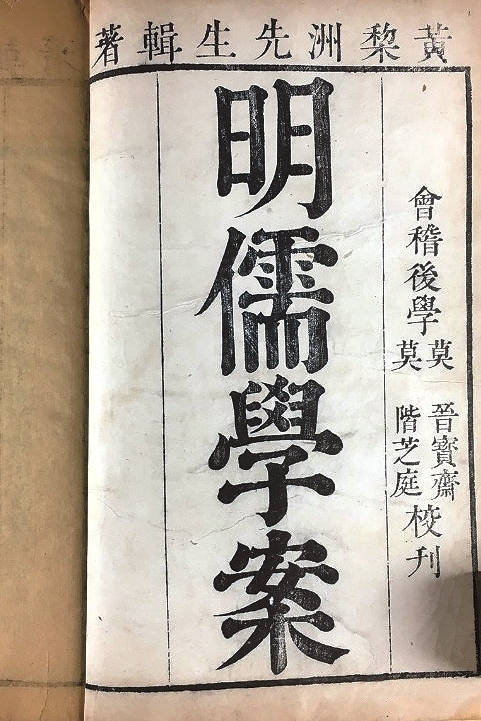 黃棃洲先生輯著
會稽後學莫晉寶齋莫階芝庭校刊
明儒學案